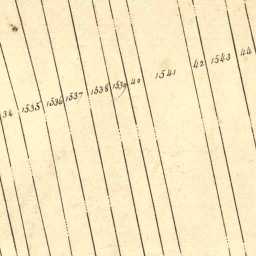 34 1535 1536 1537 1538 1539 40 1541 42 1543 44